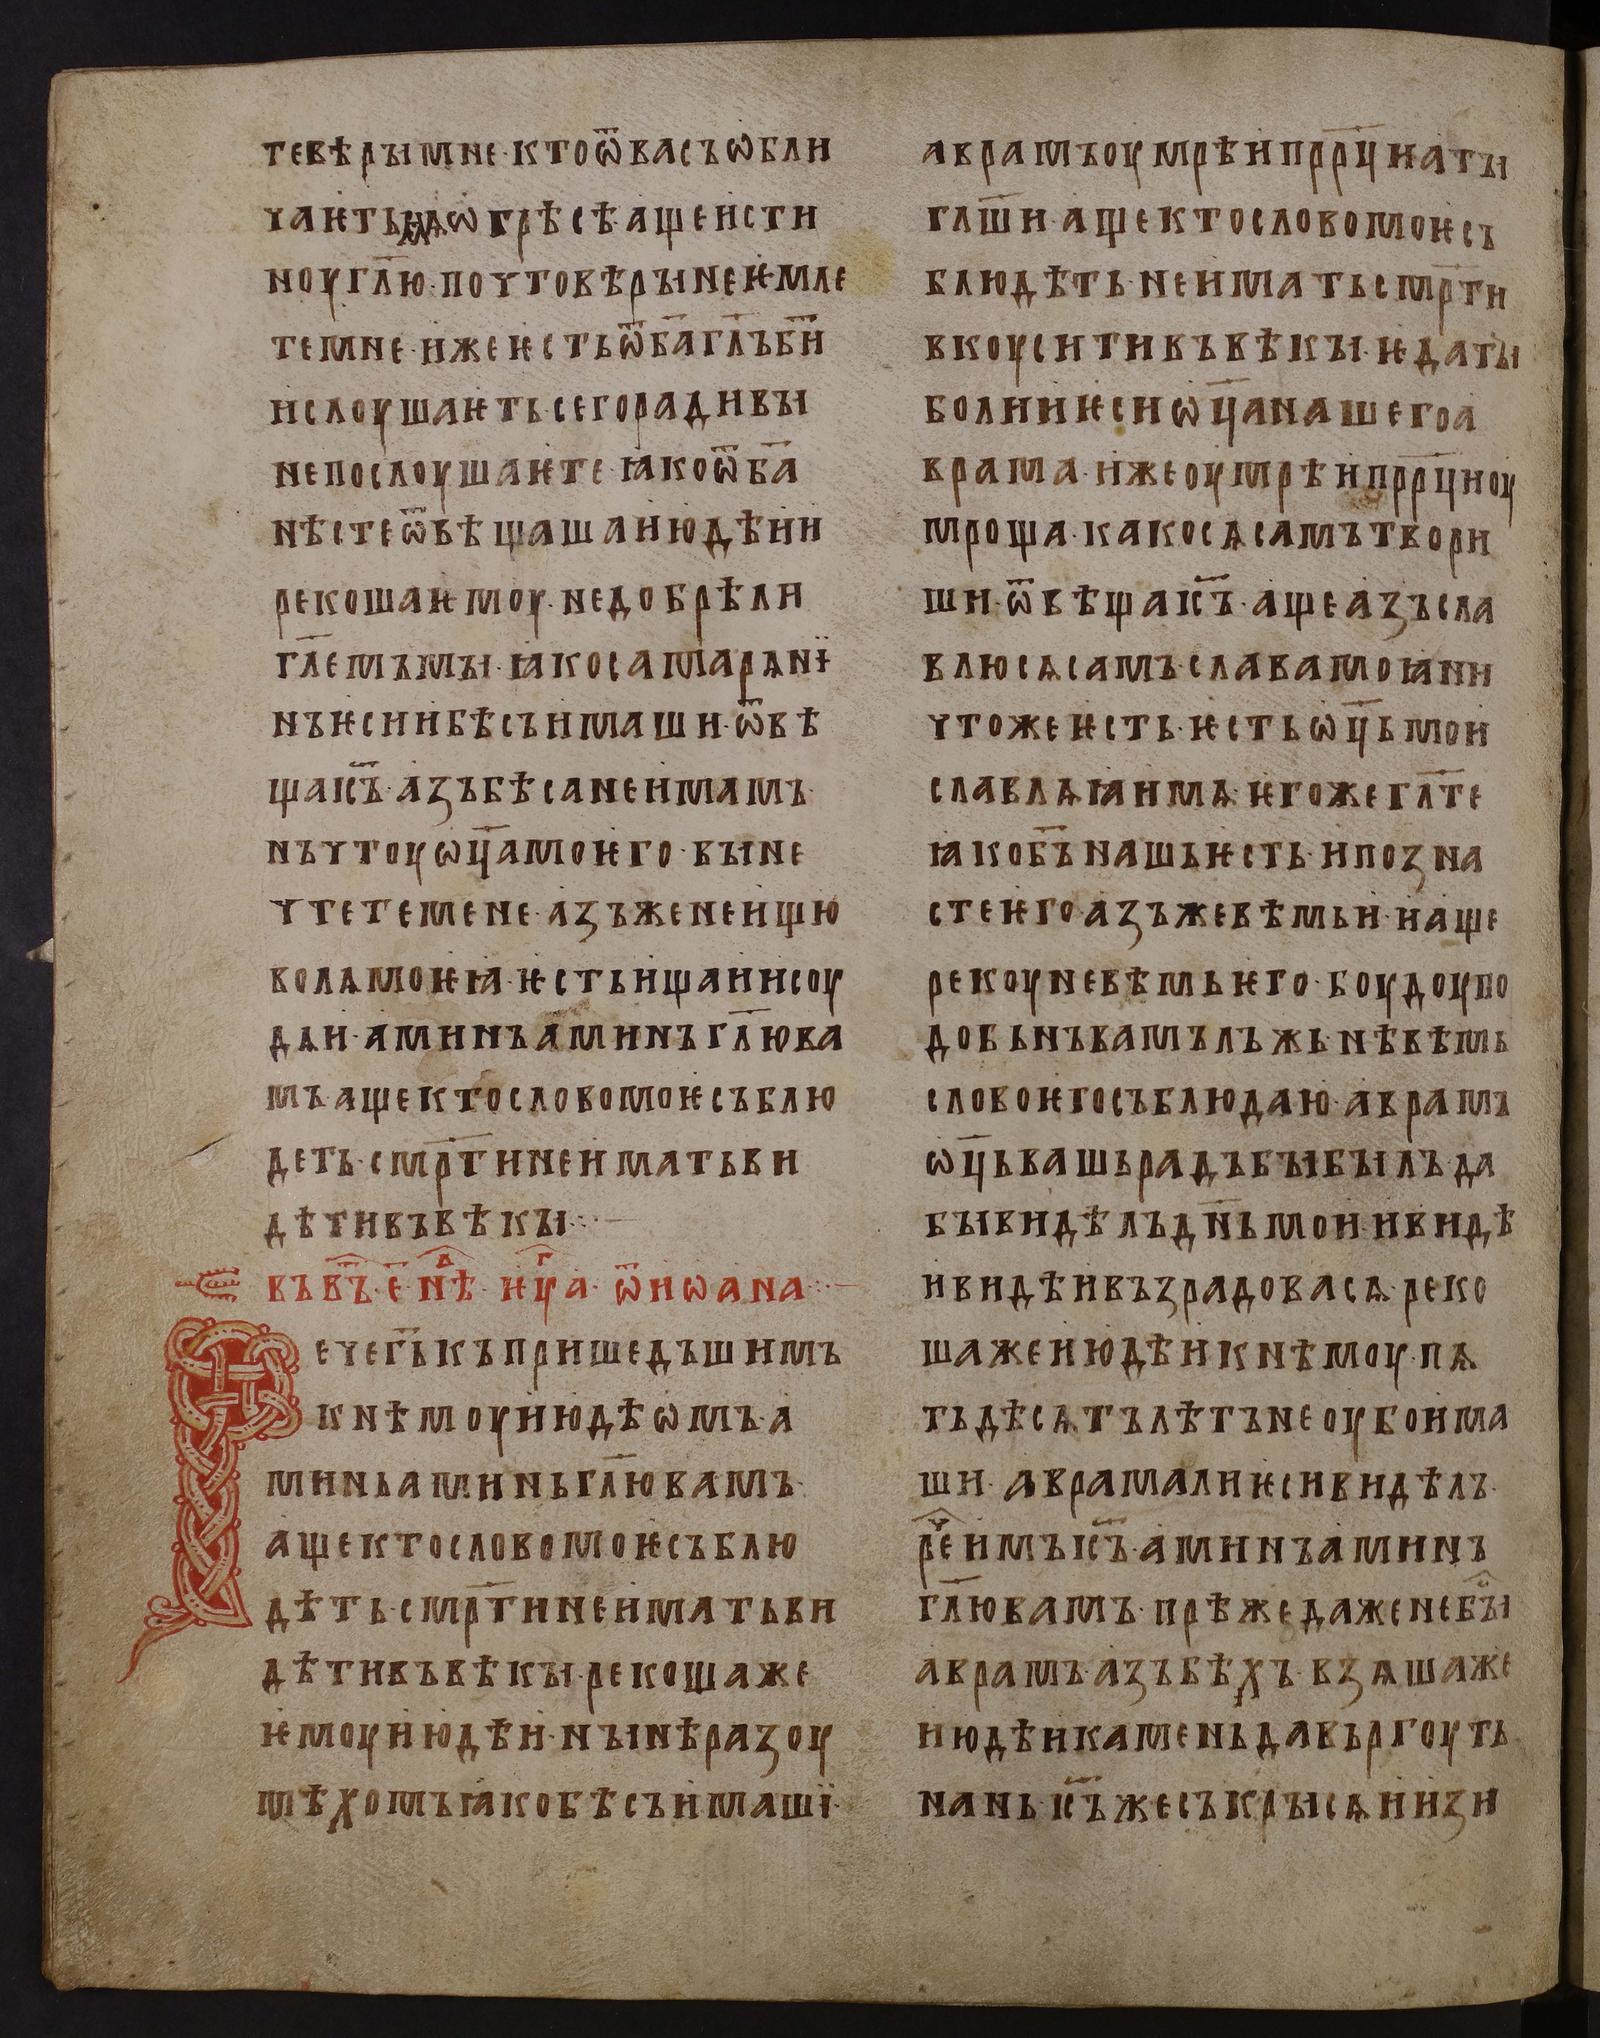 тевѣрымне·ктоѿвасъѡбли
чаѥтьмѧѡгрѣсѣ·ащеисти
ноуглю·почтовѣрынеѥмле
темне·ижеѥстьѿбаглъби
ислоушаѥть·сегорадивы
непослоушаѥте·ꙗкоѿба
нѣстеѿвѣщашаиюдѣии
рекошаѥмоу·недобрѣли
глемъмы·ꙗкосамарѧнї
нъѥсиибѣсъимаши·ѿвѣ
щаісъ·азъбѣсанеимамъ·
нъчтоуѡцамоѥго·выне
чтетемене·азъженеищю
волѧмоѥꙗ·ѥстьищаиисоу
дѧи·аминъаминъглюва
мъащектословомоѥсъблю
деть·смртинеиматьви
дѣтивъвѣкы·:·
въвъ·є·нѣ·ѥца·ѿиѡана·:·
ечегькъпришедъшимъ
кнѣмоуиюдѣѡмъ·а
миньаминьглювамъ·
ащектословомоѥсъблю
дѣть·смртинеиматьви
дѣтивъвѣкы·рекошаже
ѥмоуиюдѣи·нынѣразоу
мѣхомъꙗкобѣсъимашї·
аврамъоумрѣипррциаты
глши·ащектословомоѥсъ
блюдѣть·неиматьсмрти
вкоуситивъвѣкы·ѥдаты
болииѥсиѡцанашегоа
врама·ижеоумрѣипррциоу
мроща·какосѧсамътвори
ши·ѿвѣщаісъ·ащеазъсла
влюсѧсамъ·славамоꙗни
чтожеѥсть·ѥстьѡцьмои
славлѧꙗимѧ·ѥгожеглте
ꙗкобънашьѥсть·ипозна
стеѥгоазъжевѣмьи·иаще
рекоуневѣмьѥго·боудоупо
добьнъвамълъжь·нѣвѣмь
словоѥгосъблюдаю·аврамъ
ѡцьвашьрадъбыбылъда
бывидѣлъдньмои·ивидѣ
ивидѣивъзрадовасѧ·реко
шажеиюдѣикнѣмоу·пѧ
тьдѣсѧтълѣтънеоубоима
ши·аврамалиѥсивидѣлъ·
реимъісъ·аминъаминъ
глювамъ·прѣжедаженебы
аврамъ·азъбѣхъ·взѧшаже
июдѣикаменьдавьргоуть
нань·ісъжесъкрысѧиизи